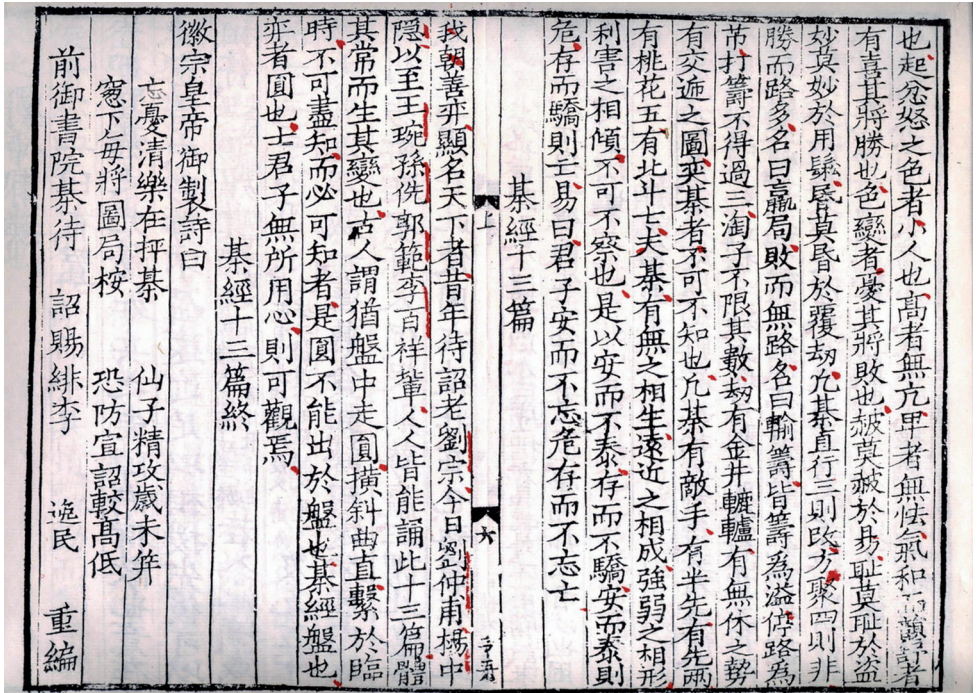 也起忿怒之色者小人也高者無亢卑者無怯氣和而韻舒者
有喜其將勝也色變者憂其將敗也赧莫赧於易恥莫恥於盜
妙莫妙於用鬆昏莫昏於覆劫凡棊直行三則改方聚四則非
勝而路多名曰贏局敗而無路名曰輸籌皆籌為溢停路為
芇打籌不得過三淘子不限其數劫有金井轆轤有無休之勢
有交遞之圖奕棊者不可不知也凡棊有敵手有半先有先兩
有桃花五有北斗七夫棊有無之相生遠近之相成強弱之相形
利害之相傾不可不察也是以安而不泰存而不驕安而泰則
危存而驕則亡易曰君子安而不忘危存而不忘亡
棊經十三篇
上
六
我朝善弈顯名天下者昔年待詔老劉宗今日劉仲甫楊中
隱以至王琬孫侁郭範李百祥輩人人皆能誦此十三篇體
其常而生其變也古人謂猶盤中走圓橫斜曲直繫於臨
時不可盡知而必可知者是圓不能出於盤也棊經盤也
弈者圓也士君子無所用心則可觀焉
棊經十三篇終
徽宗皇帝御製詩曰
忘憂清樂在枰棊 仙子精攻歲未笄
窻下每將圖局桉 恐防宣詔較高低
前御書院棊待 詔賜緋李 逸民 重編